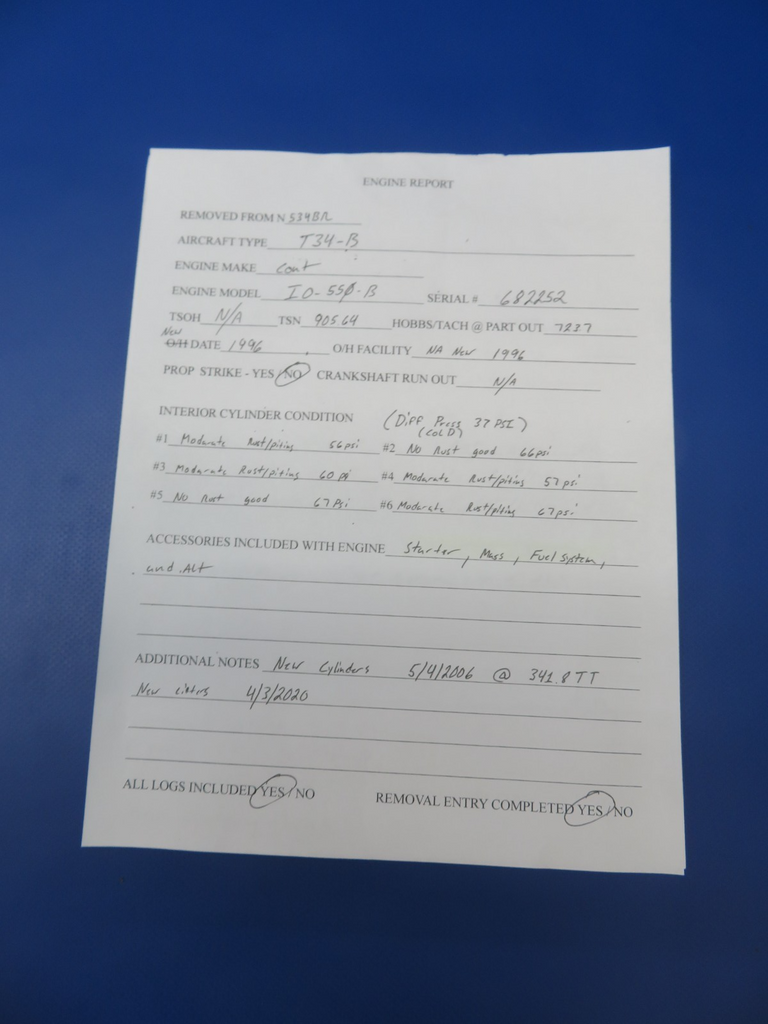 ENGINE REPORT
REMOVED FROM N 534BR
AIRCRAFT TYPE T34-B
ENGINE MAKE Cont
ENGINE MODEL IO-550-B SERIAL # 682252
TSOH N/A TSN 905.64 HOBBS/TACH @ PART OUT 7237
New
O/H DATE 1996 O/H FACILITY NA New 1996
PROP STRIKE - YES / NO CRANKSHAFT RUN OUT N/A
INTERIOR CYLINDER CONDITION (Diff Press 37 PSI)
(COLD)
#1 Moderate Rust/piting 56psi #2 No Rust good 66psi
#3 Moderate Rust/piting 60 psi #4 Moderate Rust/piting 57psi
#5 No Rust good 67 Psi #6 Moderate Rust/piting 67psi
ACCESSORIES INCLUDED WITH ENGINE Starter, Mags, Fuel System,
and Alt
ADDITIONAL NOTES New Cylinders 5/4/2006 @ 341.8 TT
New 4/3/2020
ALL LOGS INCLUDED YES / NO REMOVAL ENTRY COMPLETED YES / NO